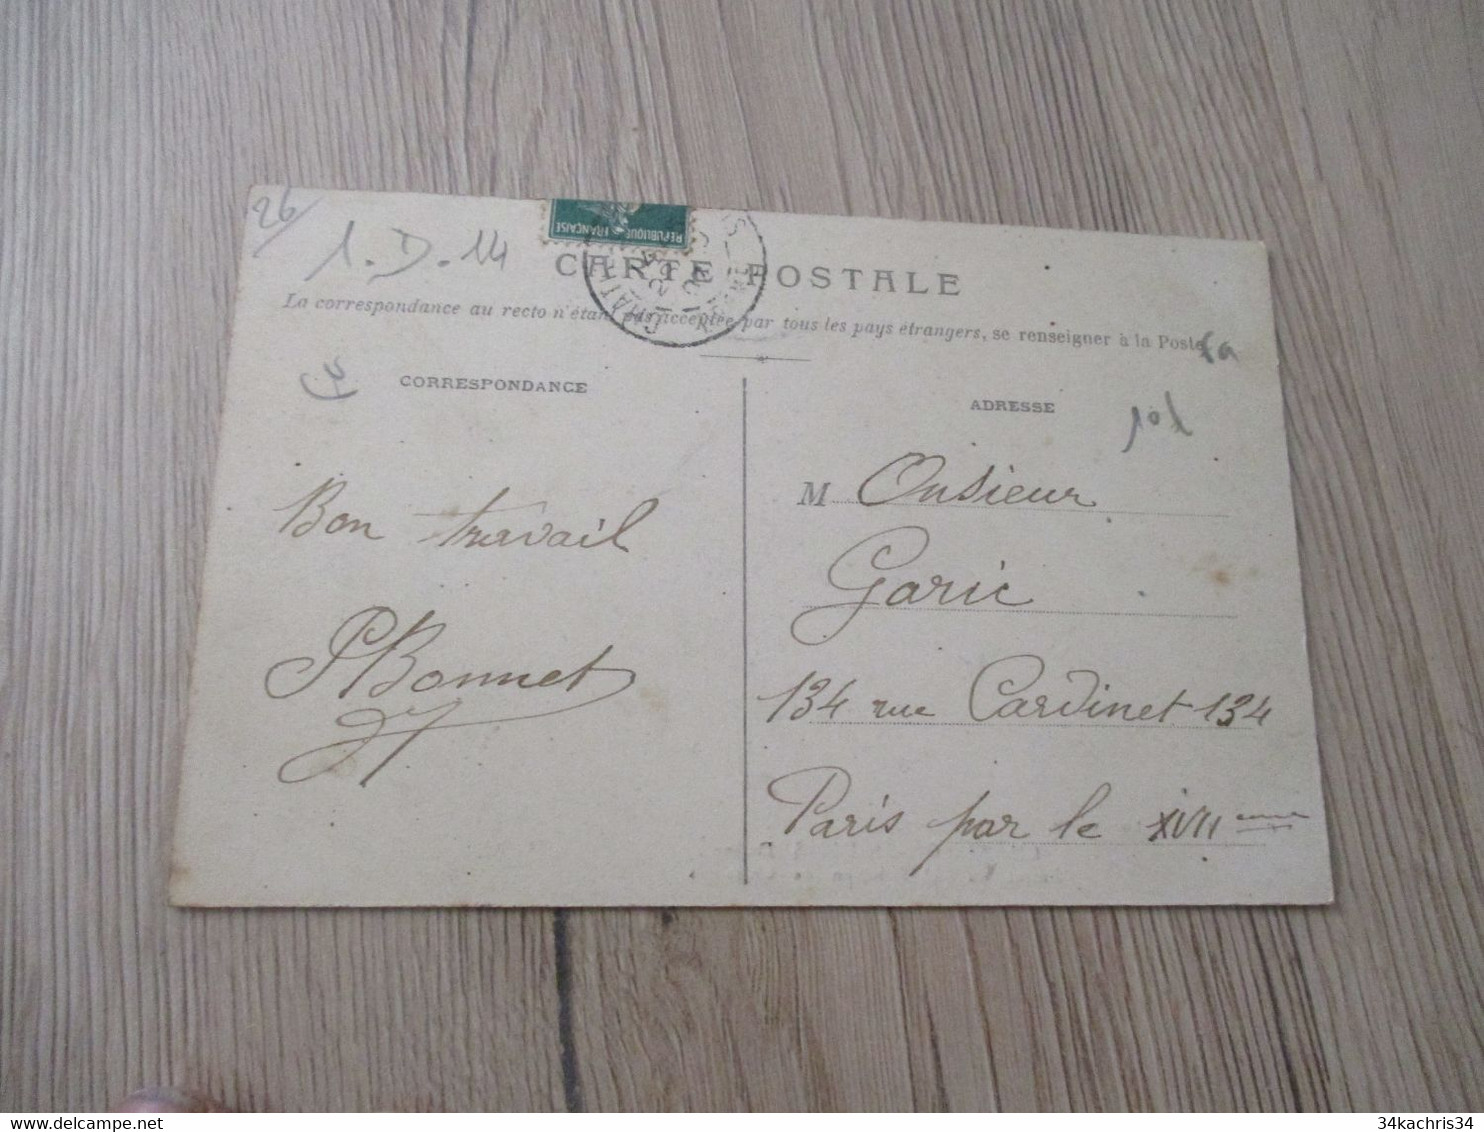 26
1.D.14
REPUBLIQUE FRANÇAISE
CARTE POSTALE
La correspondance au recto n'étant pas acceptée par tous les pays étrangers, se renseigner à la Poste
CORRESPONDANCE
Bon travail
PBonnet
ADRESSE
M Onsieur
Garic
134 rue Cardinet 134
Paris par le XVII eme
34kachris34